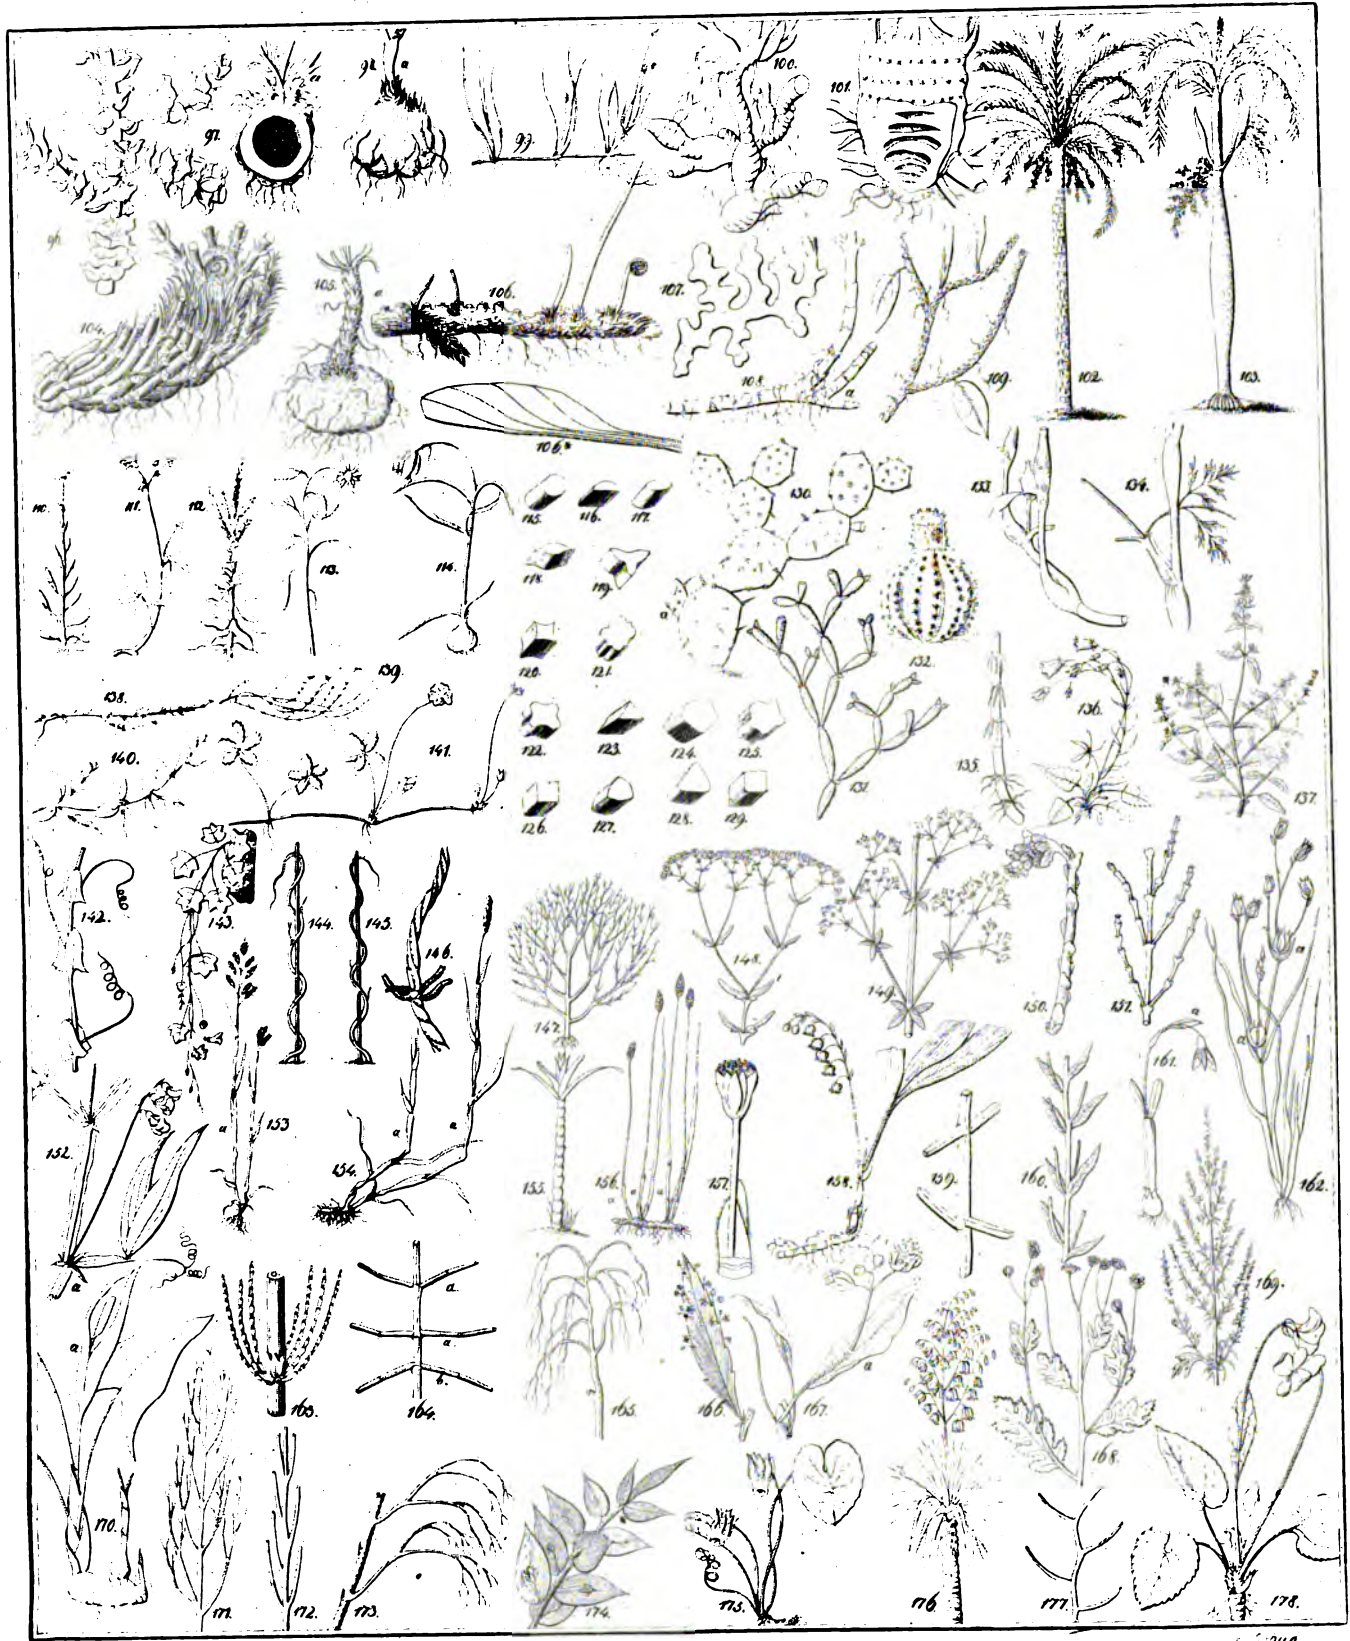 97.
a
98.
a
99.
100.
101.
96.
104.
105.
a
106.
107.
108.
a
109.
102.
103.
106*
110.
111.
112.
113.
114.
115.
116.
117.
118.
119.
120.
121.
122.
123.
124.
125.
126.
127.
128.
129.
130.
a
131.
132.
133.
134.
135.
136.
137.
138.
139.
140.
141.
142.
143.
144.
145.
146.
147.
148.
149.
150.
151.
152.
a
153
a
154.
a
a
155.
156.
157.
158.
159.
160.
161.
a
162.
a
a
163.
164.
a.
a
b.
165.
166.
167.
a
168.
169.
170.
a
171.
172.
173.
174.
175.
176.
177.
178.